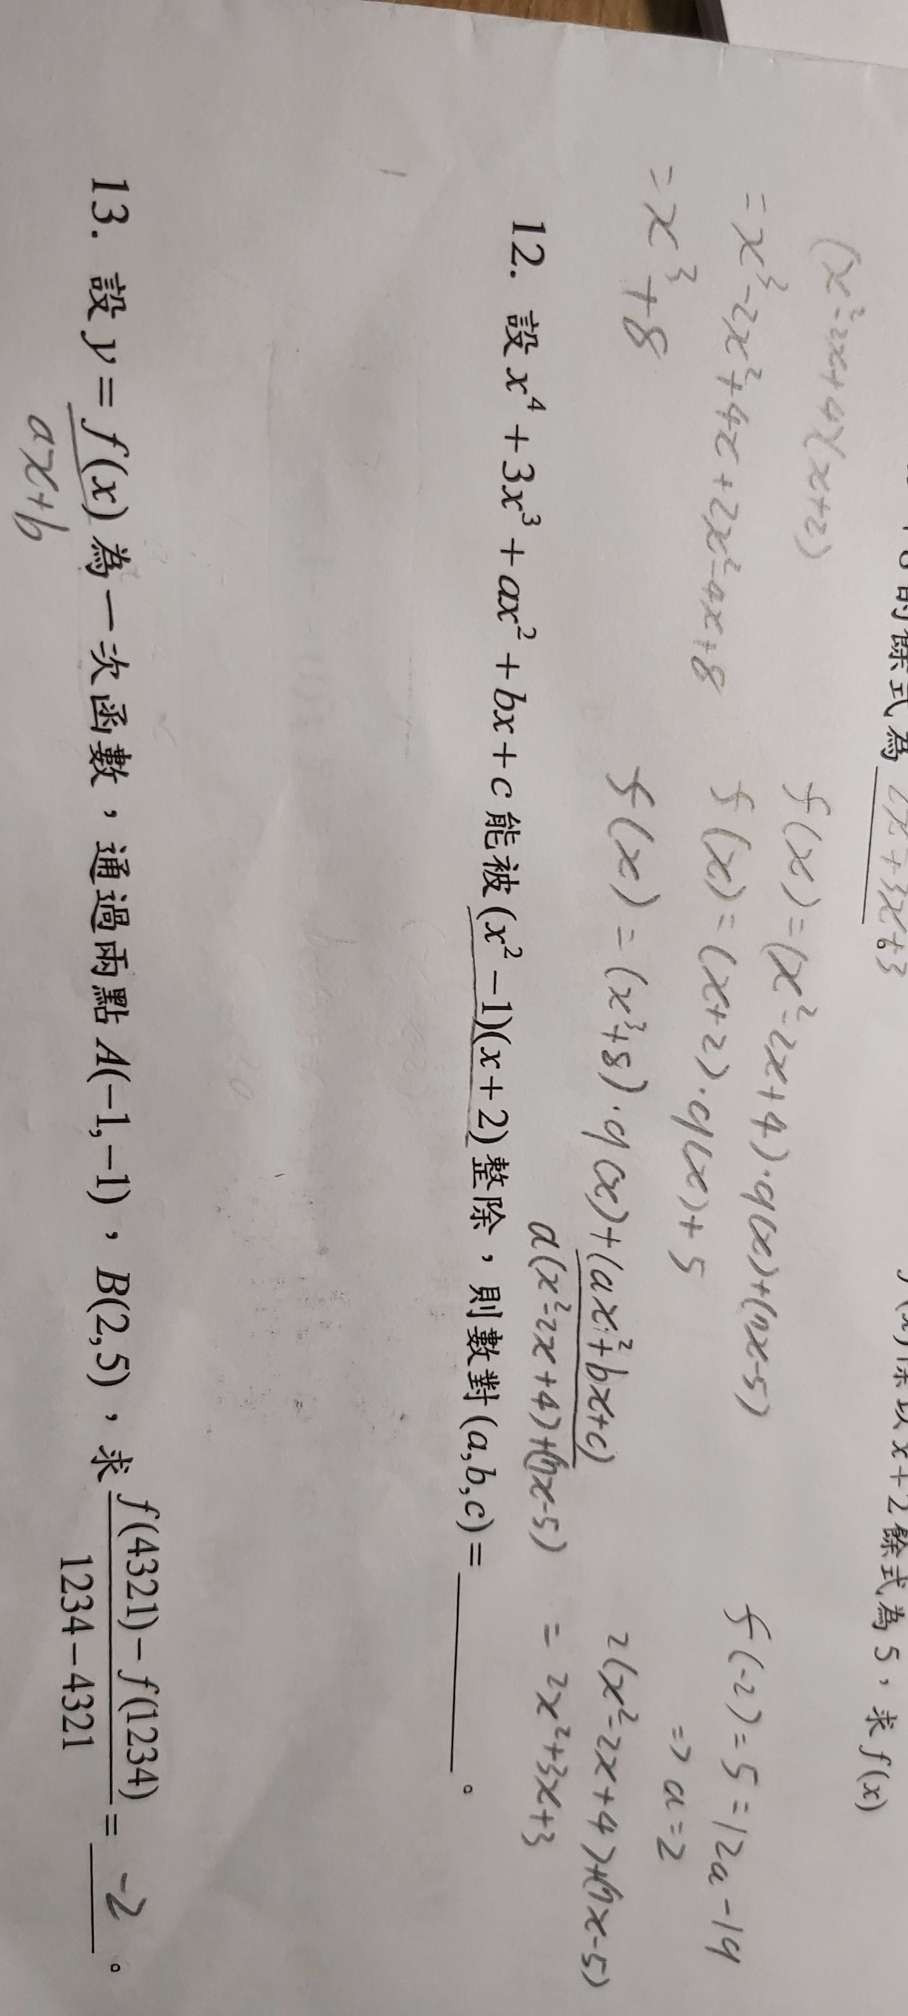 f(x)除以x+2餘式為5，求f(x)
的餘式為 2x²+3x+3
(x²-2x+4)(x+2)
=x³-2x²+4x+2x²-4x+8
=x³+8
f(x)=(x²-2x+4)·q(x)+(7x-5)
f(x)=(x+2)·q(x)+5
f(x)=(x³+8)·q(x)+(ax²+bx+c)
a(x²-2x+4)+(7x-5)
f(-2)=5=12a-19
⇒a=2
2(x²-2x+4)+(7x-5)
=2x²+3x+3
12. 設 x⁴+3x³+ax²+bx+c 能被 (x²-1)(x+2) 整除，則數對 (a,b,c)=______。
13. 設 y=f(x) 為一次函數，通過兩點 A(-1,-1)，B(2,5)，求 (f(4321)-f(1234))/(1234-4321) = -2 。
ax+b